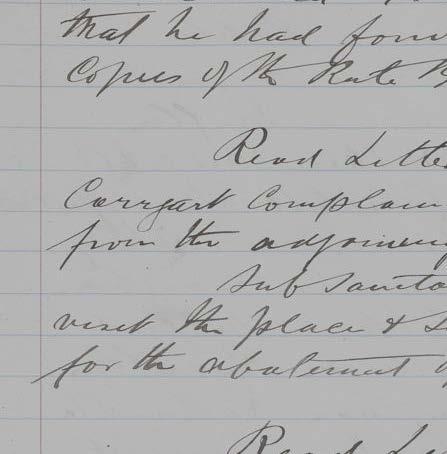 that he had for
Copies of the Rate B
Read Lette
Carrgart Complain
from the adjoining
Sub Sanita
visit the place & S
for the abatement o
Read Le